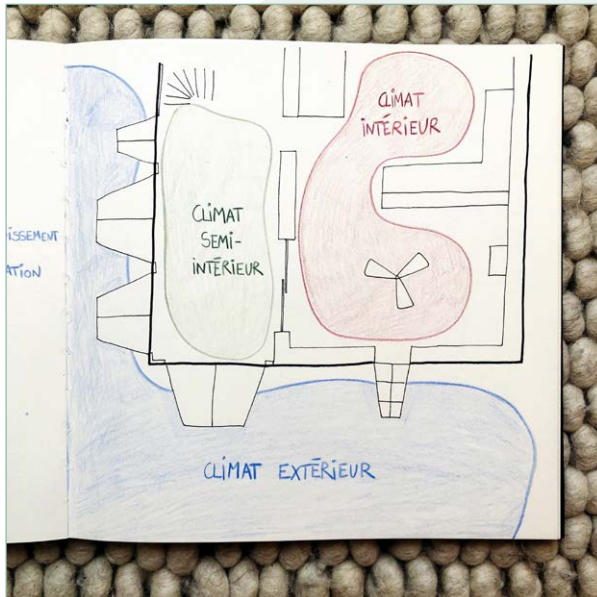 CLIMAT
INTÉRIEUR
CLIMAT
SEMI-
INTÉRIEUR
ISSEMENT
ATION
CLIMAT EXTÉRIEUR